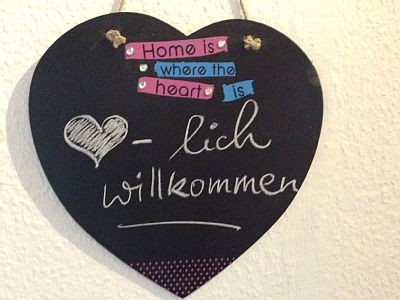 Home is
where the
heart is
- lich
willkommen